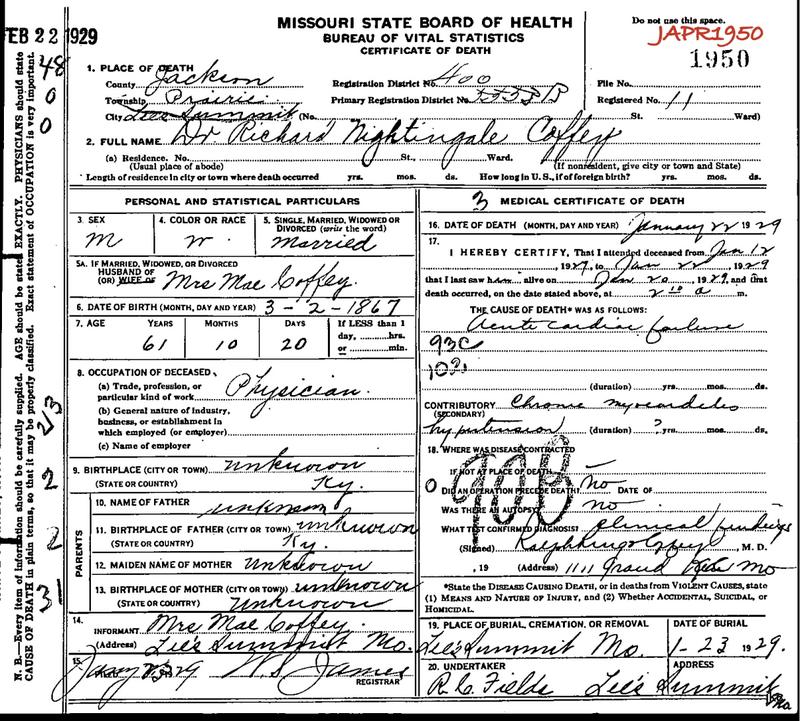 FEB 22 1929
MISSOURI STATE BOARD OF HEALTH
BUREAU OF VITAL STATISTICS
CERTIFICATE OF DEATH
Do not use this space.
JAPR1950
1950
N. B.—Every item of information should be carefully supplied. AGE should be stated EXACTLY. PHYSICIANS should state
CAUSE OF DEATH in plain terms, so that it may be properly classified. Exact statement of OCCUPATION is very important.
48
0
0
23
2
2
31
1. PLACE OF DEATH
County Jackson Registration District No. 400 File No.
Township Prairie Primary Registration District No. 5553B Registered No. 11
City Lee's Summit (No. St. Ward)
2. FULL NAME Dr. Richard Nightingale Coffey
(a) Residence. No. St., Ward.
(Usual place of abode) (If nonresident, give city or town and State)
Length of residence in city or town where death occurred yrs. mos. ds. How long in U.S., if of foreign birth? yrs. mos. ds.
PERSONAL AND STATISTICAL PARTICULARS
3. SEX 4. COLOR OR RACE 5. SINGLE, MARRIED, WIDOWED OR
DIVORCED (write the word)
M W. Married
5A. IF MARRIED, WIDOWED, OR DIVORCED
HUSBAND OF
(OR) WIFE OF Mrs Mae Coffey.
6. DATE OF BIRTH (MONTH, DAY AND YEAR) 3-2-1867
7. AGE YEARS MONTHS DAYS If LESS than 1
day, hrs.
or min.
61 10 20
8. OCCUPATION OF DECEASED
(a) Trade, profession, or
particular kind of work Physician.
(b) General nature of industry,
business, or establishment in
which employed (or employer)
(c) Name of employer
9. BIRTHPLACE (CITY OR TOWN) unknown
(STATE OR COUNTRY) Ky.
PARENTS
10. NAME OF FATHER unknown
11. BIRTHPLACE OF FATHER (CITY OR TOWN) unknown
(STATE OR COUNTRY) Ky.
12. MAIDEN NAME OF MOTHER Unknown
13. BIRTHPLACE OF MOTHER (CITY OR TOWN) unknown
(STATE OR COUNTRY) Unknown
14.
INFORMANT Mrs Mae Coffey.
(Address) Lee's Summit Mo.
15.
W. S. James
REGISTRAR
3 MEDICAL CERTIFICATE OF DEATH
16. DATE OF DEATH (MONTH, DAY AND YEAR) January 22 1929
17.
I HEREBY CERTIFY, That I attended deceased from Jan 12
, 1929, to Jan 22, 1929
that I last saw him alive on Jan 20, 1929, and that
death occurred, on the date stated above, at 2 10 a m.
THE CAUSE OF DEATH* WAS AS FOLLOWS:
Acute cardiac failure
93C
(duration) yrs. mos. ds.
CONTRIBUTORY Chronic myocarditis
(SECONDARY)
hypertension (duration) ? yrs. mos. ds.
90B
18. WHERE WAS DISEASE CONTRACTED
IF NOT AT PLACE OF DEATH?
0 DID AN OPERATION PRECEDE DEATH? no DATE OF
WAS THERE AN AUTOPSY? no
WHAT TEST CONFIRMED DIAGNOSIS? Clinical findings
(Signed) , M. D.
, 19 (Address) 1111 Grand Mo
*State the DISEASE CAUSING DEATH, or in deaths from VIOLENT CAUSES, state
(1) MEANS AND NATURE OF INJURY, and (2) Whether ACCIDENTAL, SUICIDAL, or
HOMICIDAL.
19. PLACE OF BURIAL, CREMATION, OR REMOVAL DATE OF BURIAL
Lee's Summit Mo. 1-23 1929.
20. UNDERTAKER ADDRESS
R. C. Fields Lee's Summit Mo.